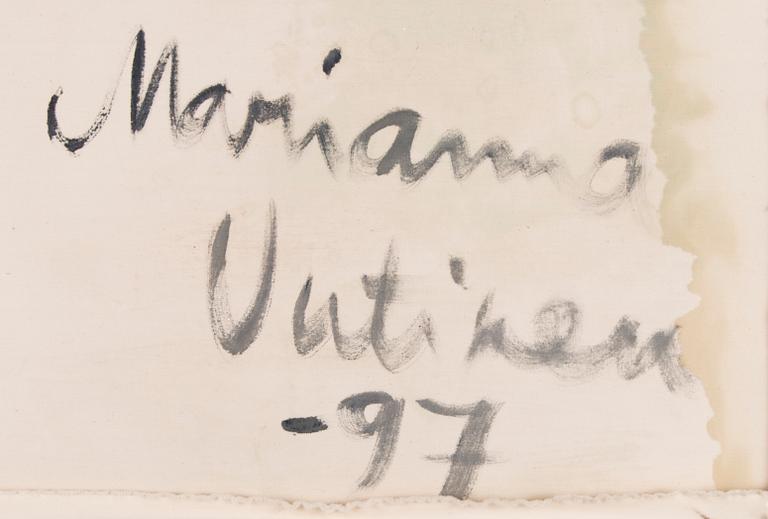 Marianna
Uutinen
-97